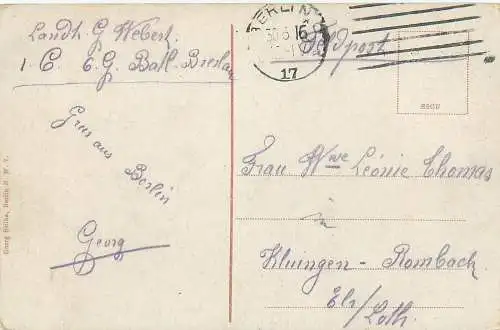 Landst. G Weberk
1. C. 6. G. Batl. Breslau
Gruss aus
Berlin
Georg
BERLIN
30.6.16
17
Feldpost
Frau Wwe Léonie Thomas
in
Kluingen - Rombach
Els/Loth.
Georg Stilke, Berlin N.W.7.